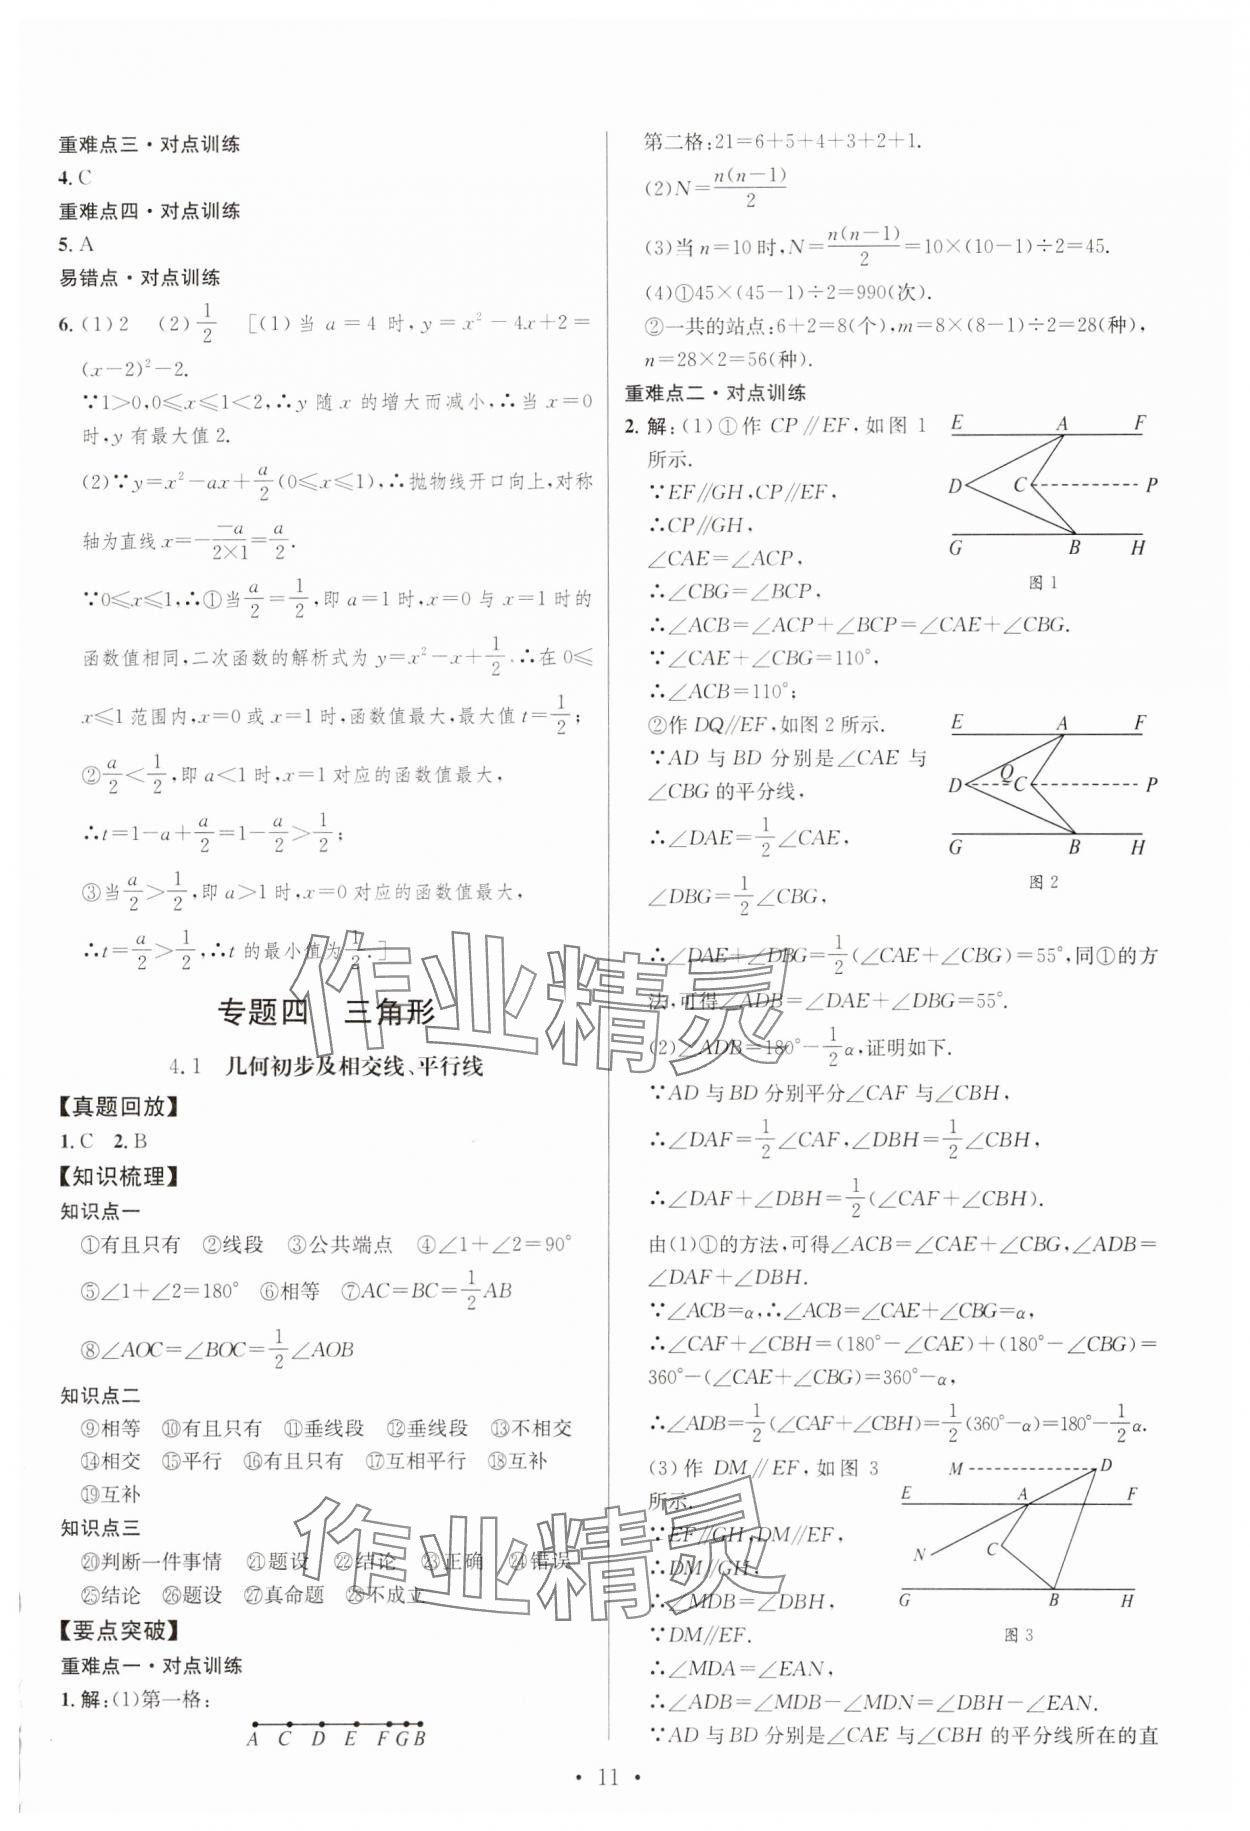 重难点三·对点训练
4. C
重难点四·对点训练
5. A
易错点·对点训练
6. (1)2 (2)1/2 [(1)当 a=4 时, y=x²-4x+2=
(x-2)²-2.
∵1>0,0≤x≤1<2,∴y 随 x 的增大而减小,∴当 x=0
时,y 有最大值2.
(2)∵y=x²-ax+a/2(0≤x≤1),∴抛物线开口向上,对称
轴为直线 x=-(-a)/(2×1)=a/2.
∵0≤x≤1,∴①当a/2=1/2,即 a=1 时,x=0 与 x=1 时的
函数值相同,二次函数的解析式为 y=x²-x+1/2.∴在 0≤
x≤1 范围内,x=0 或 x=1 时,函数值最大,最大值 t=1/2;
②a/2<1/2,即 a<1 时,x=1 对应的函数值最大,
∴t=1-a+a/2=1-a/2>1/2;
③当a/2>1/2,即 a>1 时,x=0 对应的函数值最大,
∴t=a/2>1/2,∴t 的最小值为1/2.]
专题四 三角形
4.1 几何初步及相交线、平行线
【真题回放】
1. C 2. B
【知识梳理】
知识点一
①有且只有 ②线段 ③公共端点 ④∠1+∠2=90°
⑤∠1+∠2=180° ⑥相等 ⑦AC=BC=1/2AB
⑧∠AOC=∠BOC=1/2∠AOB
知识点二
⑨相等 ⑩有且只有 ⑪垂线段 ⑫垂线段 ⑬不相交
⑭相交 ⑮平行 ⑯有且只有 ⑰互相平行 ⑱互补
⑲互补
知识点三
⑳判断一件事情 ㉑题设 ㉒结论 ㉓正确 ㉔错误
㉕结论 ㉖题设 ㉗真命题 ㉘不成立
【要点突破】
重难点一·对点训练
1. 解:(1)第一格:
A C D E F G B
第二格:21=6+5+4+3+2+1.
(2)N=n(n-1)/2
(3)当 n=10 时,N=n(n-1)/2=10×(10-1)÷2=45.
(4)①45×(45-1)÷2=990(次).
②一共的站点:6+2=8(个),m=8×(8-1)÷2=28(种),
n=28×2=56(种).
重难点二·对点训练
2. 解:(1)①作 CP∥EF,如图 1
所示.
∵EF∥GH,CP∥EF,
∴CP∥GH,
∠CAE=∠ACP,
∴∠CBG=∠BCP,
E A F
D C P
G B H
图 1
∴∠ACB=∠ACP+∠BCP=∠CAE+∠CBG.
∵∠CAE+∠CBG=110°,
∴∠ACB=110°;
②作 DQ∥EF,如图 2 所示.
∵AD 与 BD 分别是∠CAE 与
∠CBG 的平分线,
∴∠DAE=1/2∠CAE,
∠DBG=1/2∠CBG,
E A F
D Q C P
G B H
图 2
∴∠DAE+∠DBG=1/2(∠CAE+∠CBG)=55°,同①的方
法,可得∠ADB=∠DAE+∠DBG=55°.
(2)∠ADB=180°-1/2α,证明如下.
∵AD 与 BD 分别平分∠CAF 与∠CBH,
∴∠DAF=1/2∠CAF,∠DBH=1/2∠CBH,
∴∠DAF+∠DBH=1/2(∠CAF+∠CBH).
由(1)①的方法,可得∠ACB=∠CAE+∠CBG,∠ADB=
∠DAF+∠DBH.
∵∠ACB=α,∴∠ACB=∠CAE+∠CBG=α,
∴∠CAF+∠CBH=(180°-∠CAE)+(180°-∠CBG)=
360°-(∠CAE+∠CBG)=360°-α,
∴∠ADB=1/2(∠CAF+∠CBH)=1/2(360°-α)=180°-1/2α.
(3)作 DM∥EF,如图 3
所示.
∵EF∥GH,DM∥EF,
∴DM∥GH,
∴∠MDB=∠DBH,
∵DM∥EF.
∴∠MDA=∠EAN,
M D
E A F
N C
G B H
图 3
∴∠ADB=∠MDB-∠MDN=∠DBH-∠EAN.
∵AD 与 BD 分别是∠CAE 与∠CBH 的平分线所在的直
· 11 ·
作业精灵
作业精灵